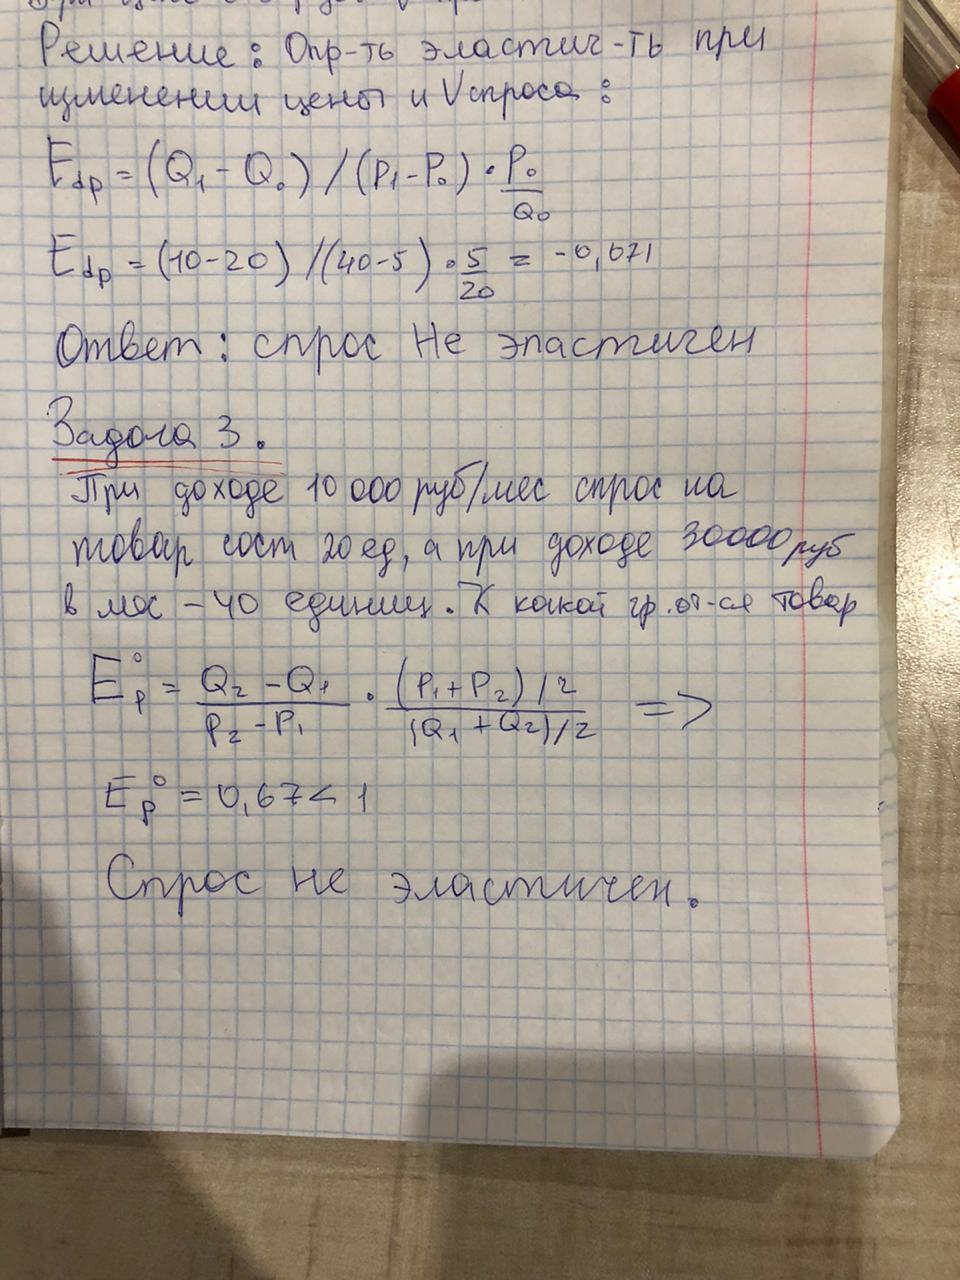 Решение: Опр-ть эластич-ть при
изменении цены и V спроса:
E_dp = (Q₁ - Q₀) / (P₁ - P₀) · P₀/Q₀
E_dp = (10-20) / (40-5) · 5/20 = -0,071
Ответ: спрос не эластичен
Задача 3.
При доходе 10 000 руб/мес спрос на
товар сост 20 ед, а при доходе 30000 руб
в мес - 40 единиц. К какой гр. от-ся товар
E_p° = (Q₂ - Q₁)/(P₂ - P₁) · ((P₁ + P₂)/2)/((Q₁ + Q₂)/2) =>
E_p° = 0,67 < 1
Спрос не эластичен.